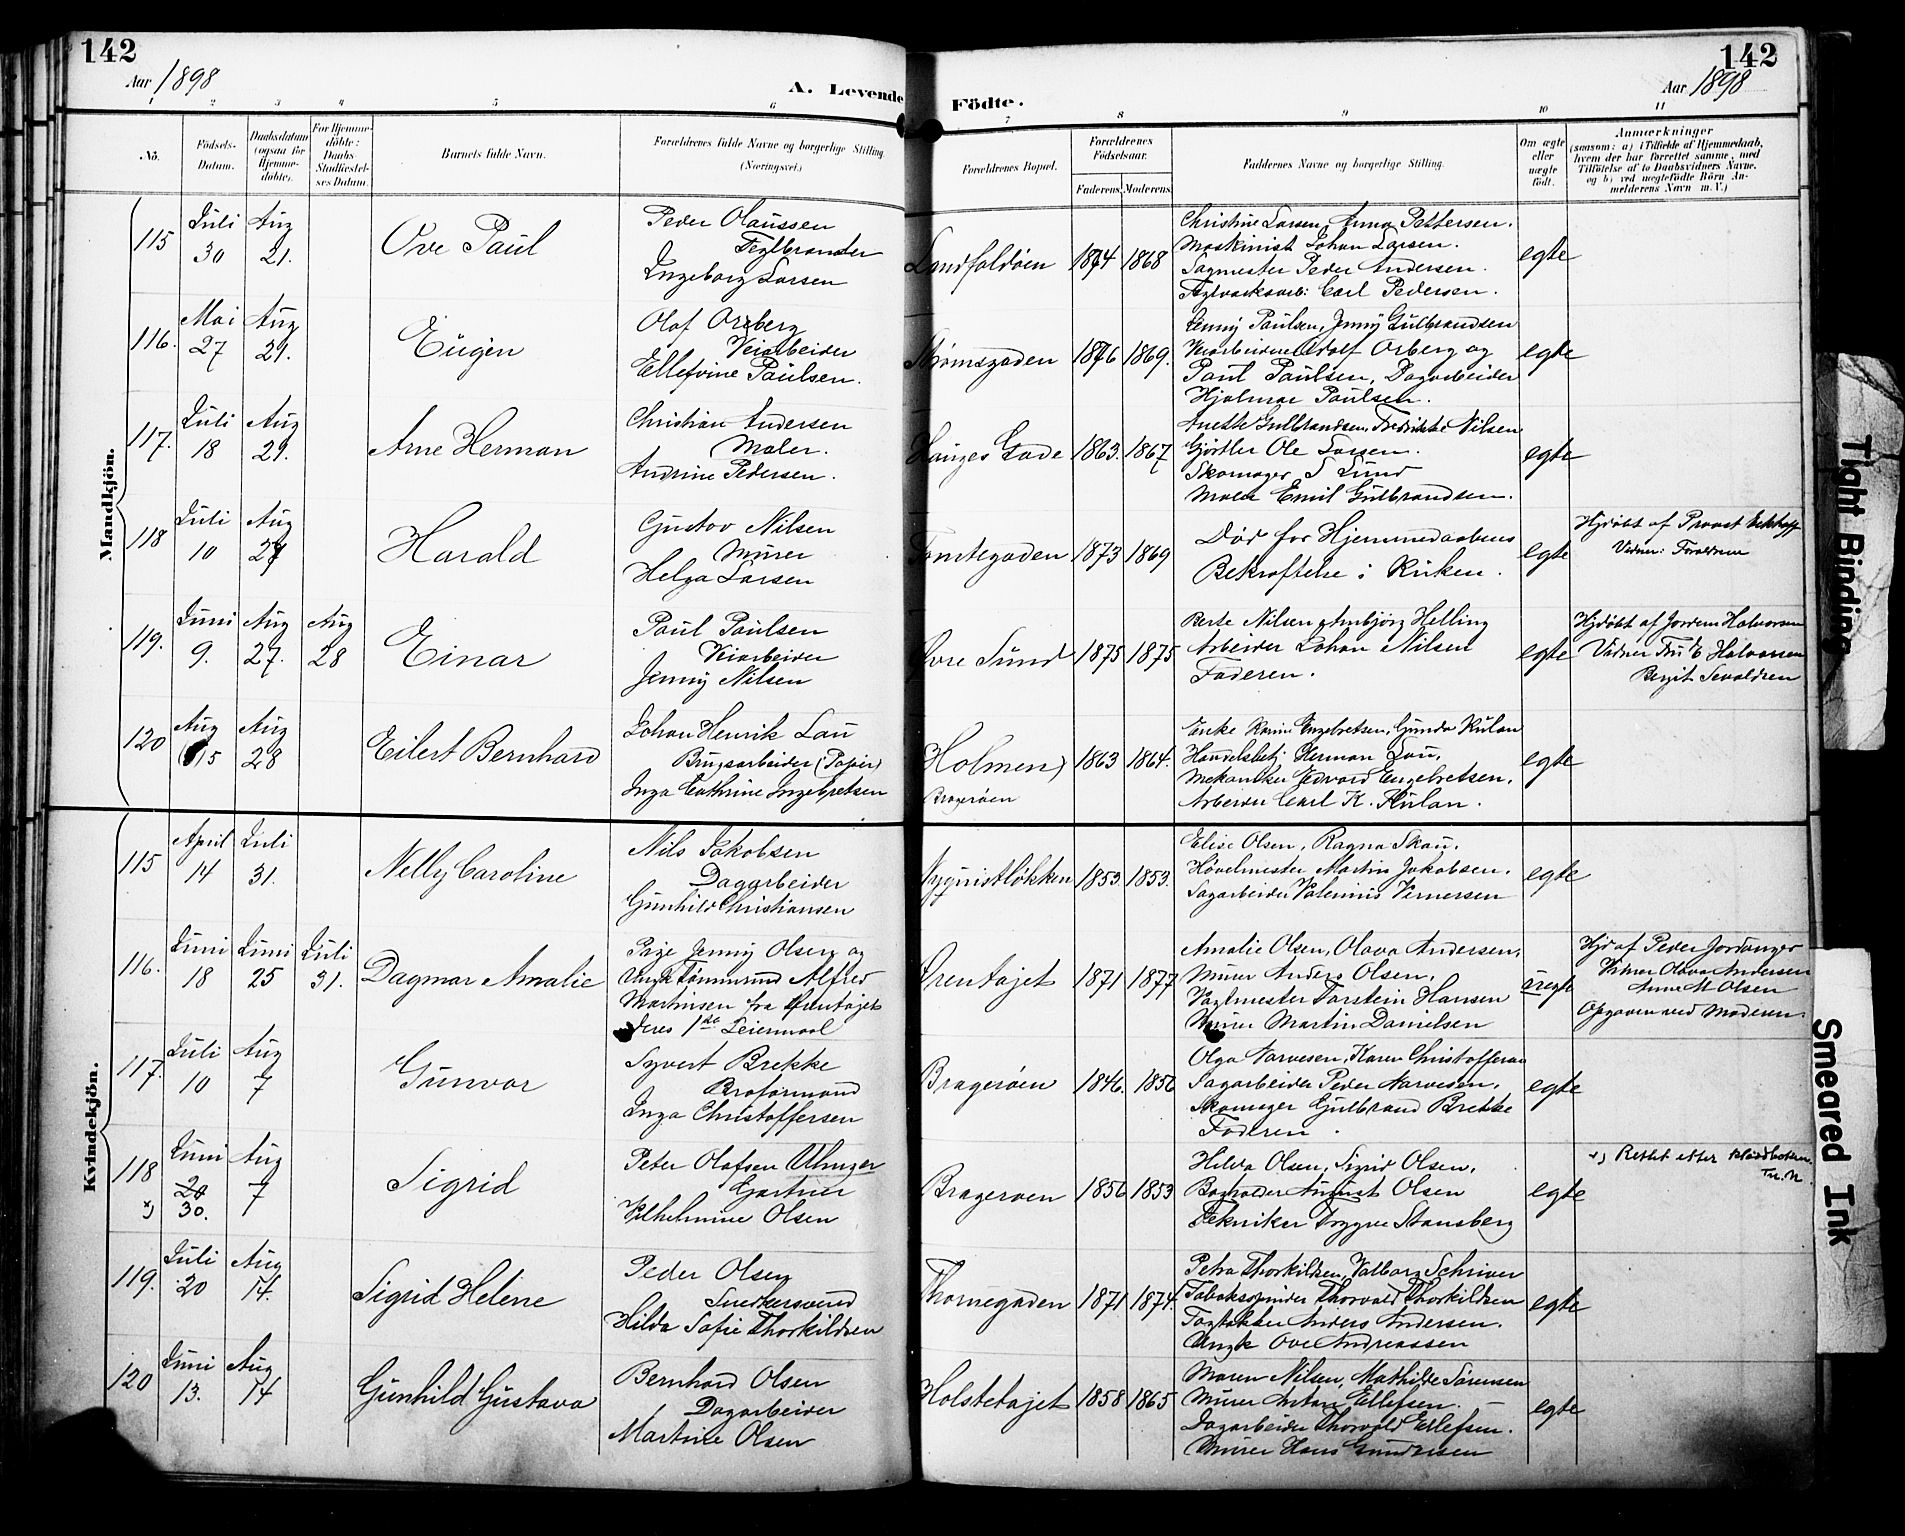 142
Aar 1898
A. Levende
1 2 3 4 5 6
No.
Födsels-Datum.
Daabsdatum (ogsaa for Hjemme-döbte).
For Hjemme-döbte: Daabs-Stadfæstel-ses Datum.
Barnets fulde Navn.
Forældrenes fulde Navne og borgerlige Stilling (Næringsvei.)
Mandkjön.
115 Juli 30 Aug 21. Ove Paul
Peder Olaussen
Teglbrænder
Ingeborg Larsen
116. Mai 27 Aug 21. Eugen
Olaf Orberg
Veiarbeider
Ellefine Paulsen.
117. Juli 18 Aug 21. Arne Herman
Christian Andersen
Maler.
Andrine Pedersen.
118 Juli 10 Aug 27 Harald
Gustav Nilsen
Murer
Helga Larsen
119. Juni 9. Aug 27. Aug 28 Einar
Paul Paulsen
Veiarbeider
Jenny Nilsen
120 Aug 15 Aug 28 Eilert Bernhard
Johan Henrik Lau
Brugsarbeider (Papir)
Inga Cathrine Ingebretsen
Kvindekjön.
115 April 14 Juli 31. Nelly Caroline
Nils Jakobsen
Dagarbeider
Gunhild Christiansen
116. Juni 18 Juni 25 Juli 31. Dagmar Amalie
Pige Jenny Olsen og
Ungk Tømmermd Alfred
Martinsen fra Ørentajet
deres 1ste Leiermaal
117. Juli 10 Aug 7 Gunvor
Syvert Brekke
Broformand
Inga Christoffersen
118 Juni 20 x) 30. Aug 7 Sigrid
Peter Olafsen
Gartner
Vilhelmine Olsen
119. Juli 20 Aug 14. Sigrid Helene
Peder Olsen
Snedkersvend
Hilda Sofie Thorkildsen
120 Juni 13. Aug 14 Gunhild Gustava
Bernhard Olsen
Dagarbeider
Martine Olsen
142
Aar 1898
Födte.
7 8 9 10 11
Forældrenes Bopæl.
Forældrenes Födselsaar.
Faderens. Moderens.
Faddernes Navne og borgerlige Stilling.
Om ægte eller uægte födt.
Anmærkninger
(saasom: a) i Tilfælde af Hjemmedaab, hvem der har forrettet samme, med Tilföielse af to Daabsvidners Navne, og b) ved uægtefödte Börn An-melderens Navn m. V.)
Landfaldøen 1874 1868
Christine Larsen, Anna Pettersen.
Maskinist Johan Larsen.
Sagmester Peder Andersen.
Teglværksarb: Carl Pedersen.
egte
Strømsgaden 1876 1869.
Jenny Paulsen, Jenny Gulbrandsen
Veiarbeidere Adolf Orberg og
Paul Paulsen, Dagarbeider
Hjalmar Paulsen.
egte
Hauges Gade 1863. 1867
Anette Gulbrandsen, Fredrikke Nilsen
Gjørtler Ole Larsen.
Skomager S Lund
Maler Emil Gulbrandsen.
egte
Tomtegaden 1873 1869
Død før Hjemmedaabens
Bekræftelse i Kirken.
egte
Hjdøbt af Provst Eckhoff
Vidner: Forældrene
Øvre Sund 1875 1875
Berte Nilsen, Anbjørg Helling
Arbeider Johan Nilsen
Faderen.
egte
Hjdøbt af Jordem Halvorsen
Vidner Fru E Halvorsen
Bergit Sevaldsen
Holmen) Bragerøen 1863 1864.
Enke Karine Engebretsen, Gunda Kulan
Handelsbetj: Herman Lau,
Mekaniker Edvard Engebretsen,
Arbeider Carl K. Kulan.
egte
Nygristløkken 1853. 1853.
Elise Olsen, Ragna Skau,
Høvelmester Martin Jakobsen.
Sagarbeider Valerinus Vernersen
egte
Ørentajet 1871 1877
Amalie Olsen, Olava Andersen,
Murer Anders Olsen,
Vagtmester Torstein Hansen
Murer Martin Danielsen
uegte
Hjd af Peder Jordanger
Vidner Olava Andersen
Anne M Olsen
Opgaven ved Moderen.
Bragerøen 1846. 1856
Olga Narvesen, Karen Christoffersen
Sagarbeider Peder Narvesen,
Skomager Gulbrand Brekke
Faderen.
egte
Bragerøen 1856 1853
Hilda Olsen, Sigrid Olsen,
Bogholder August Olsen
Tekniker Trygve Stansberg
egte
x) Rettet efter
Thornegaden 1871 1874.
Petra Thorkildsen, Valborg Schriver
Tobakspinder Thorvald Thorkildsen
Tagtækker Anders Andersen.
Ungk Ove Andreassen
egte
Holstetajet 1858 1865
Maren Nilsen, Mathilde Sørensen
Murer Anton Ellefsen.
Dagarbeider Thorvald Ellefsen.
Murer Hans Gundersen
egte
Tight Binding
Smeared Ink